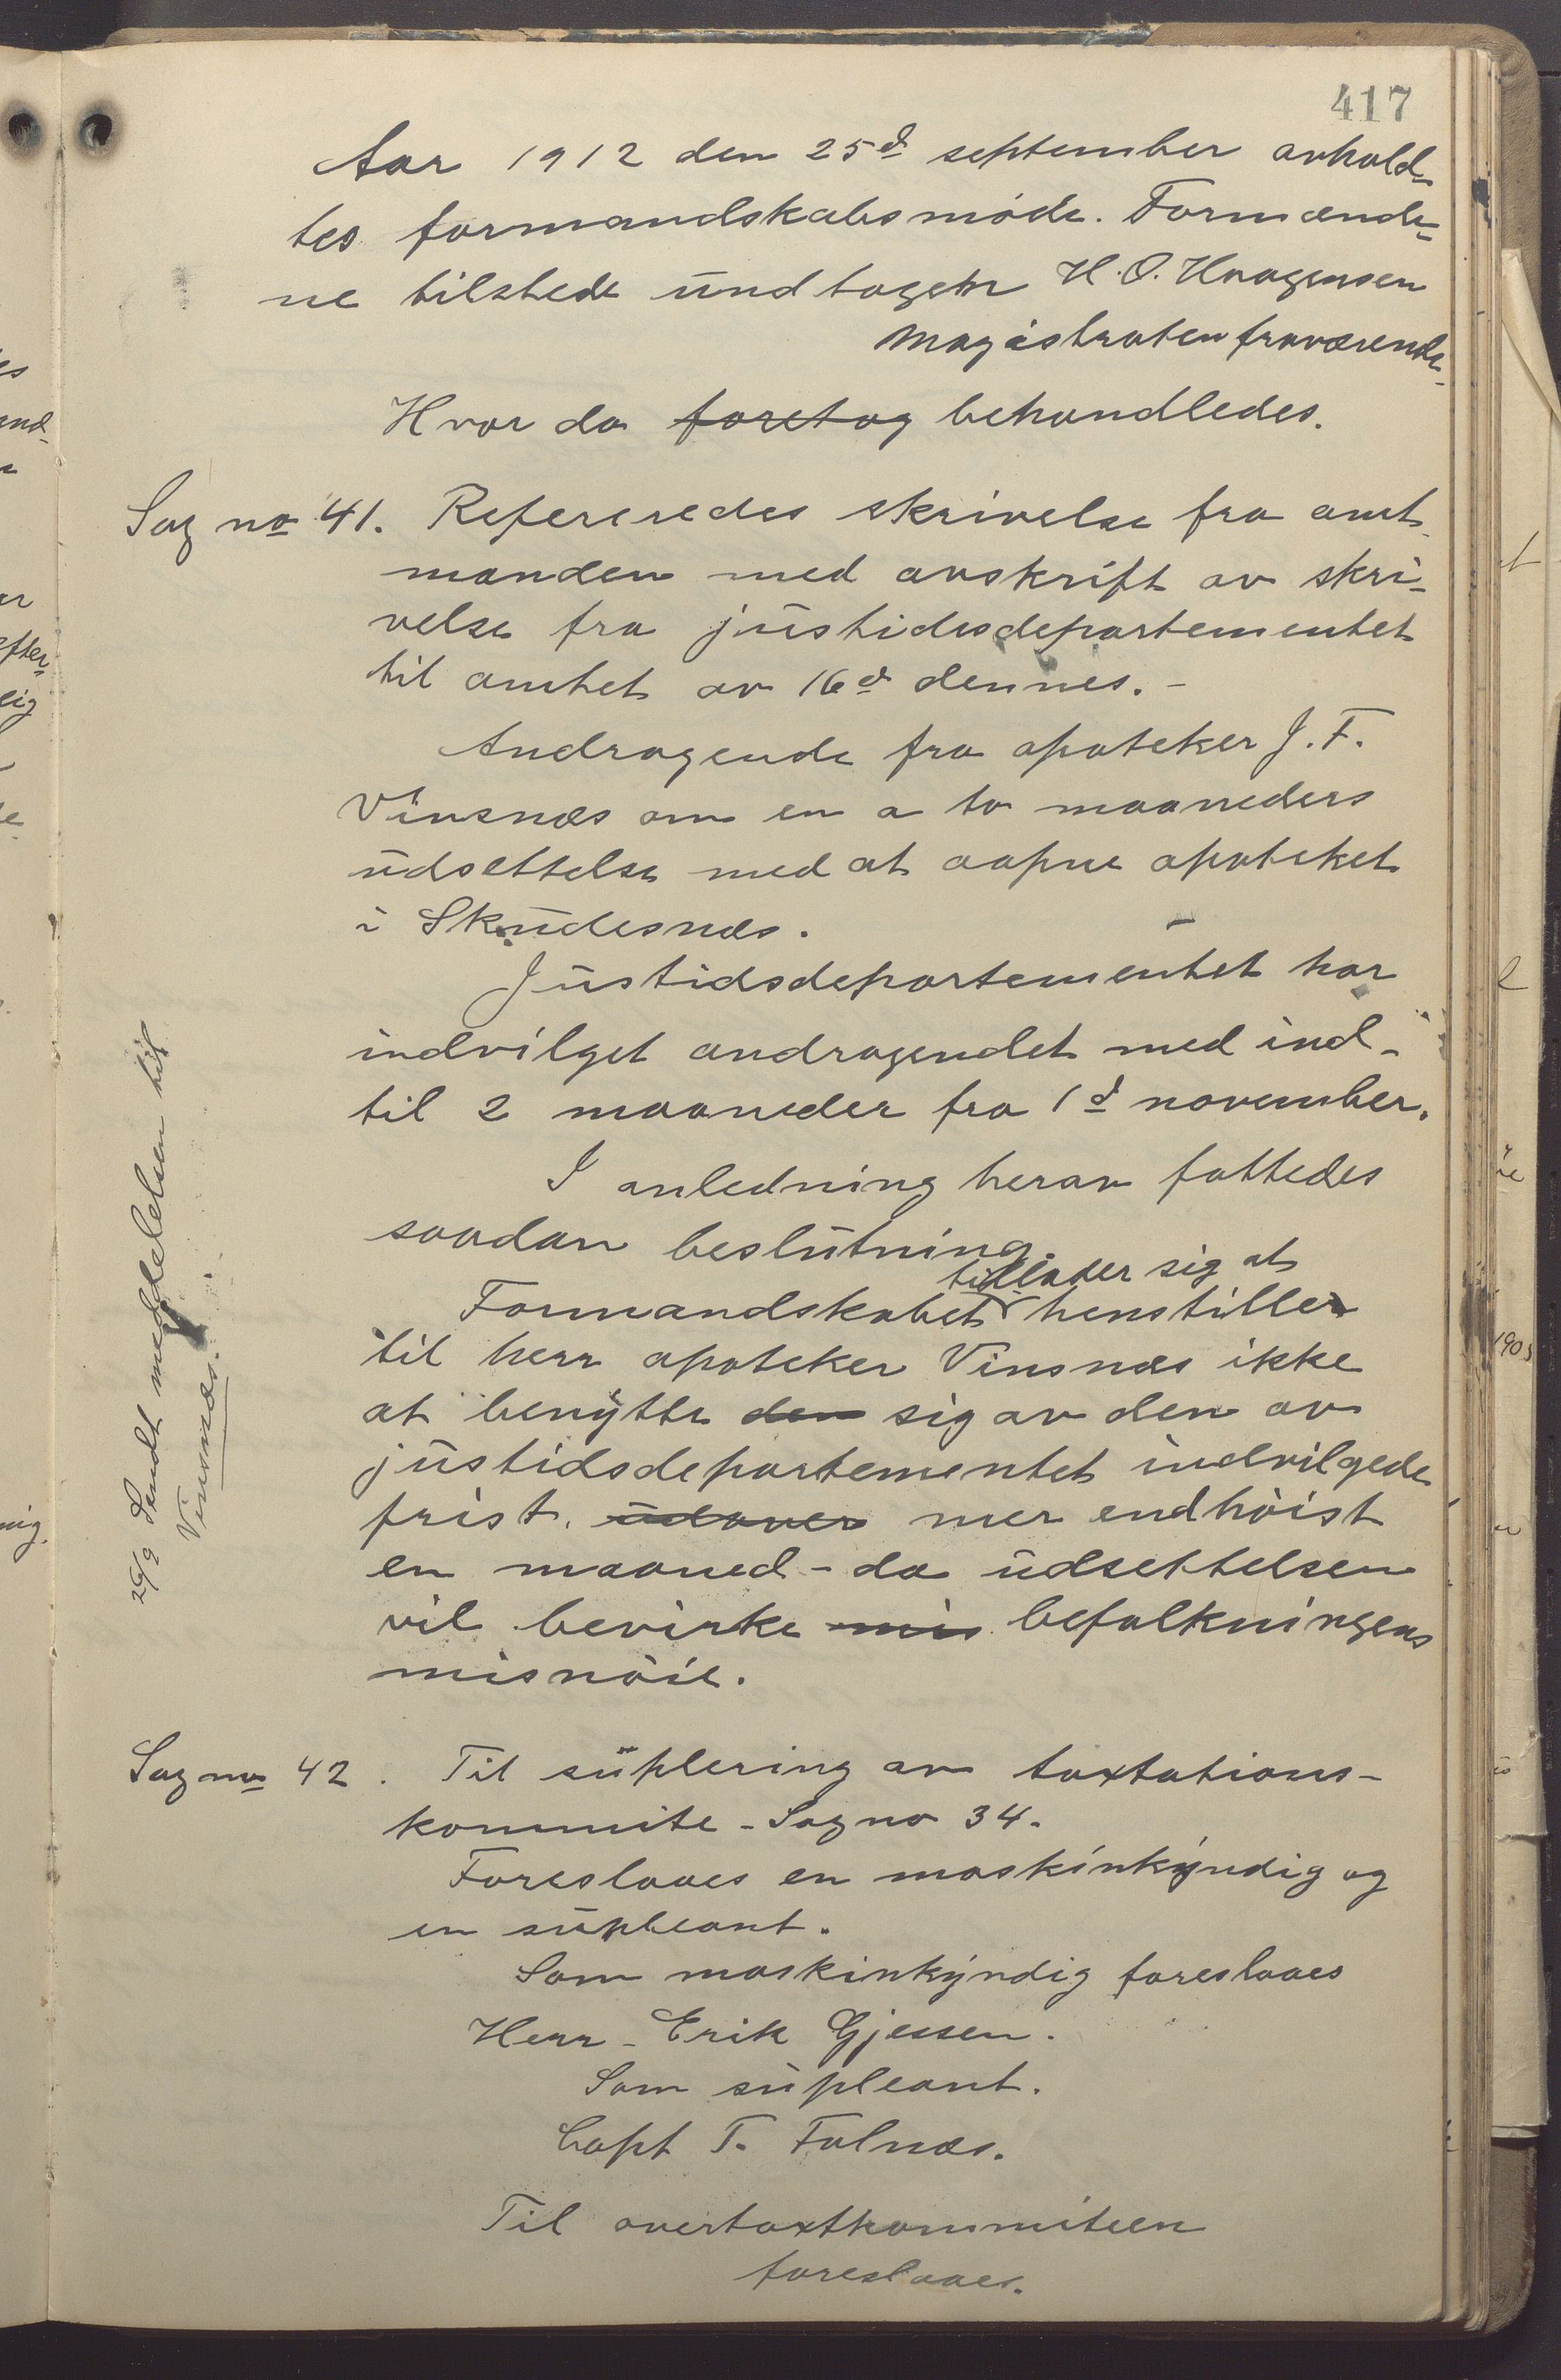 417
Aar 1912 den 25d september avhold-
tes formandskabsmøde. Formænde-
ne tilstede undtagen H. O. Haagensen
Magistraten fraværende.
Hvor da foretog behandledes.
Sag no 41. Refereredes skrivelse fra amt-
manden med avskrift av skri-
velse fra justidsdepartementet
til amtet av 16d dennes. -
Andragende fra apoteker J. F.
Vinsnæs om en a to maaneders
udsettelse med at aapne apoteket
i Skudesnæs.
Justidsdepartementet har
indvilget andragendet med ind-
til 2 maaneder fra 1d november.
I anledning herav fattedes
saadan beslutning.
tillader sig at
Formandskabet henstiller
til herr apoteker Vinsnæs ikke
at benytte den sig av den av
justidsdepartementet indvilgede
frist. udover mer end høist
en maaned - da udsettelsen
vil bevirke mis befolkningens
misnøie.
26/9 Sendt meddelelsen til
Vinsnæs.
Sag no 42. Til suplering av taxtations-
kommite - Sag no 34.
Foreslaaes en maskinkyndig og
en supleant.
Som maskinkyndig foreslaaes
Herr - Erik Gjessen.
Som supleant.
Capt T. Falnæs.
Til overtaxtkommiteen
foreslaaes.